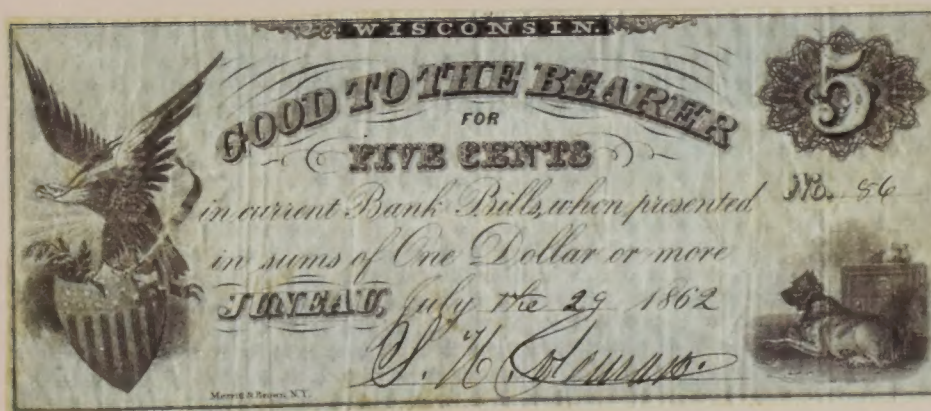 WISCONSIN.
GOOD TO THE BEARER
FOR
FIVE CENTS
5
No. 86
in current Bank Bills, when presented
in sums of One Dollar or more
JUNEAU, July the 29 1862
S. H.
N.Y.